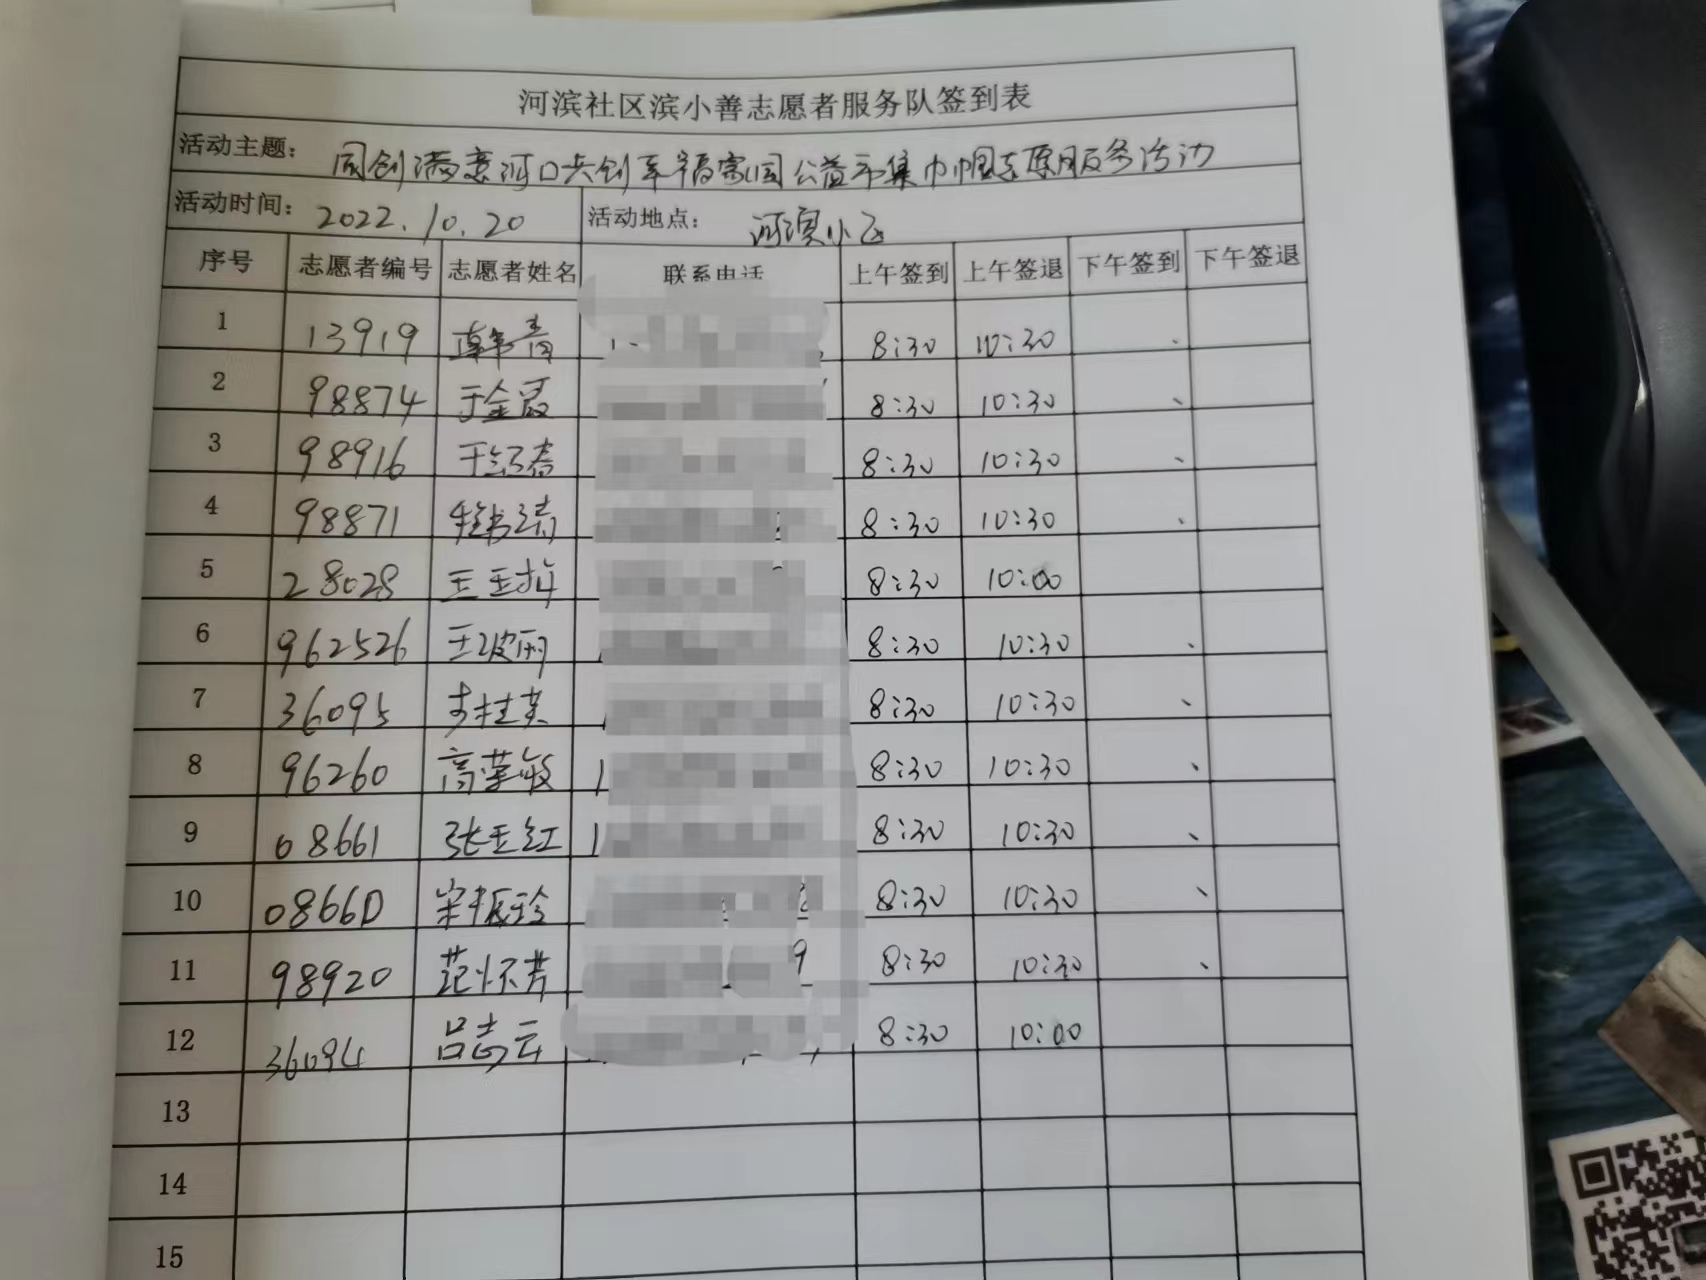 河滨社区滨小善志愿者服务队签到表
活动主题： 同创满意河口共创幸福家园公益市集巾帼志愿服务活动
活动时间： 2022.10.20 活动地点： 河滨小区
序号 志愿者编号 志愿者姓名 联系电话 上午签到 上午签退 下午签到 下午签退
1 13919 韩青 8:30 10:30
2 98874 于金霞 8:30 10:30
3 98916 于红春 8:30 10:30
4 98871 8:30 10:30
5 28028 王玉梅 8:30 10:00
6 962526 王波丽 8:30 10:30
7 36095 李桂英 8:30 10:30
8 96260 高荣敏 1 8:30 10:30
9 08661 张玉红 1 8:30 10:30
10 08660 宋振玲 8:30 10:30
11 98920 范怀芳 9 8:30 10:30
12 36094 吕志云 8:30 10:00
13
14
15